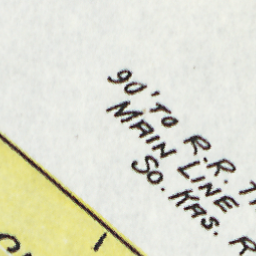 90' TO R.R.
MAIN LINE
SO. KAS.